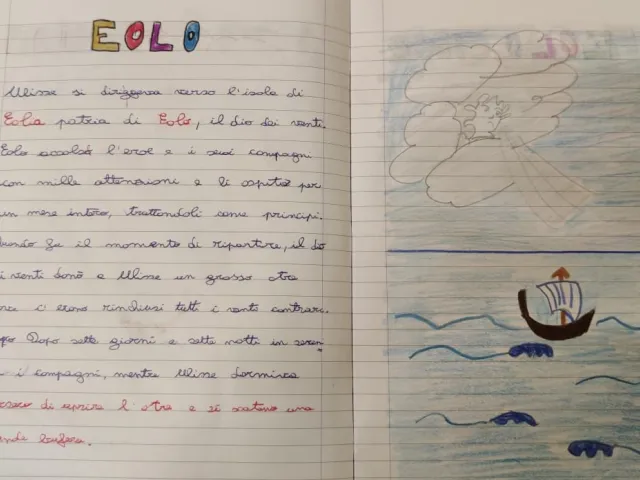 EOLO
Ulisse si dirigeva verso l'isola di
Eola patria di Eolo, il dio dei venti.
Eolo accolse l'eroe e i suoi compagni
con mille attenzioni e li ospitò per
un mese intero, trattandoli come principi.
uando fu il momento di ripartire, il dio
i venti donò a Ulisse un grosso otre
c'erano rinchiusi tutti i venti contrari.
po Dopo sette giorni e sette notti in seren
i compagni, mentre Ulisse dormiva
di aprire l'otre e si scatenò una